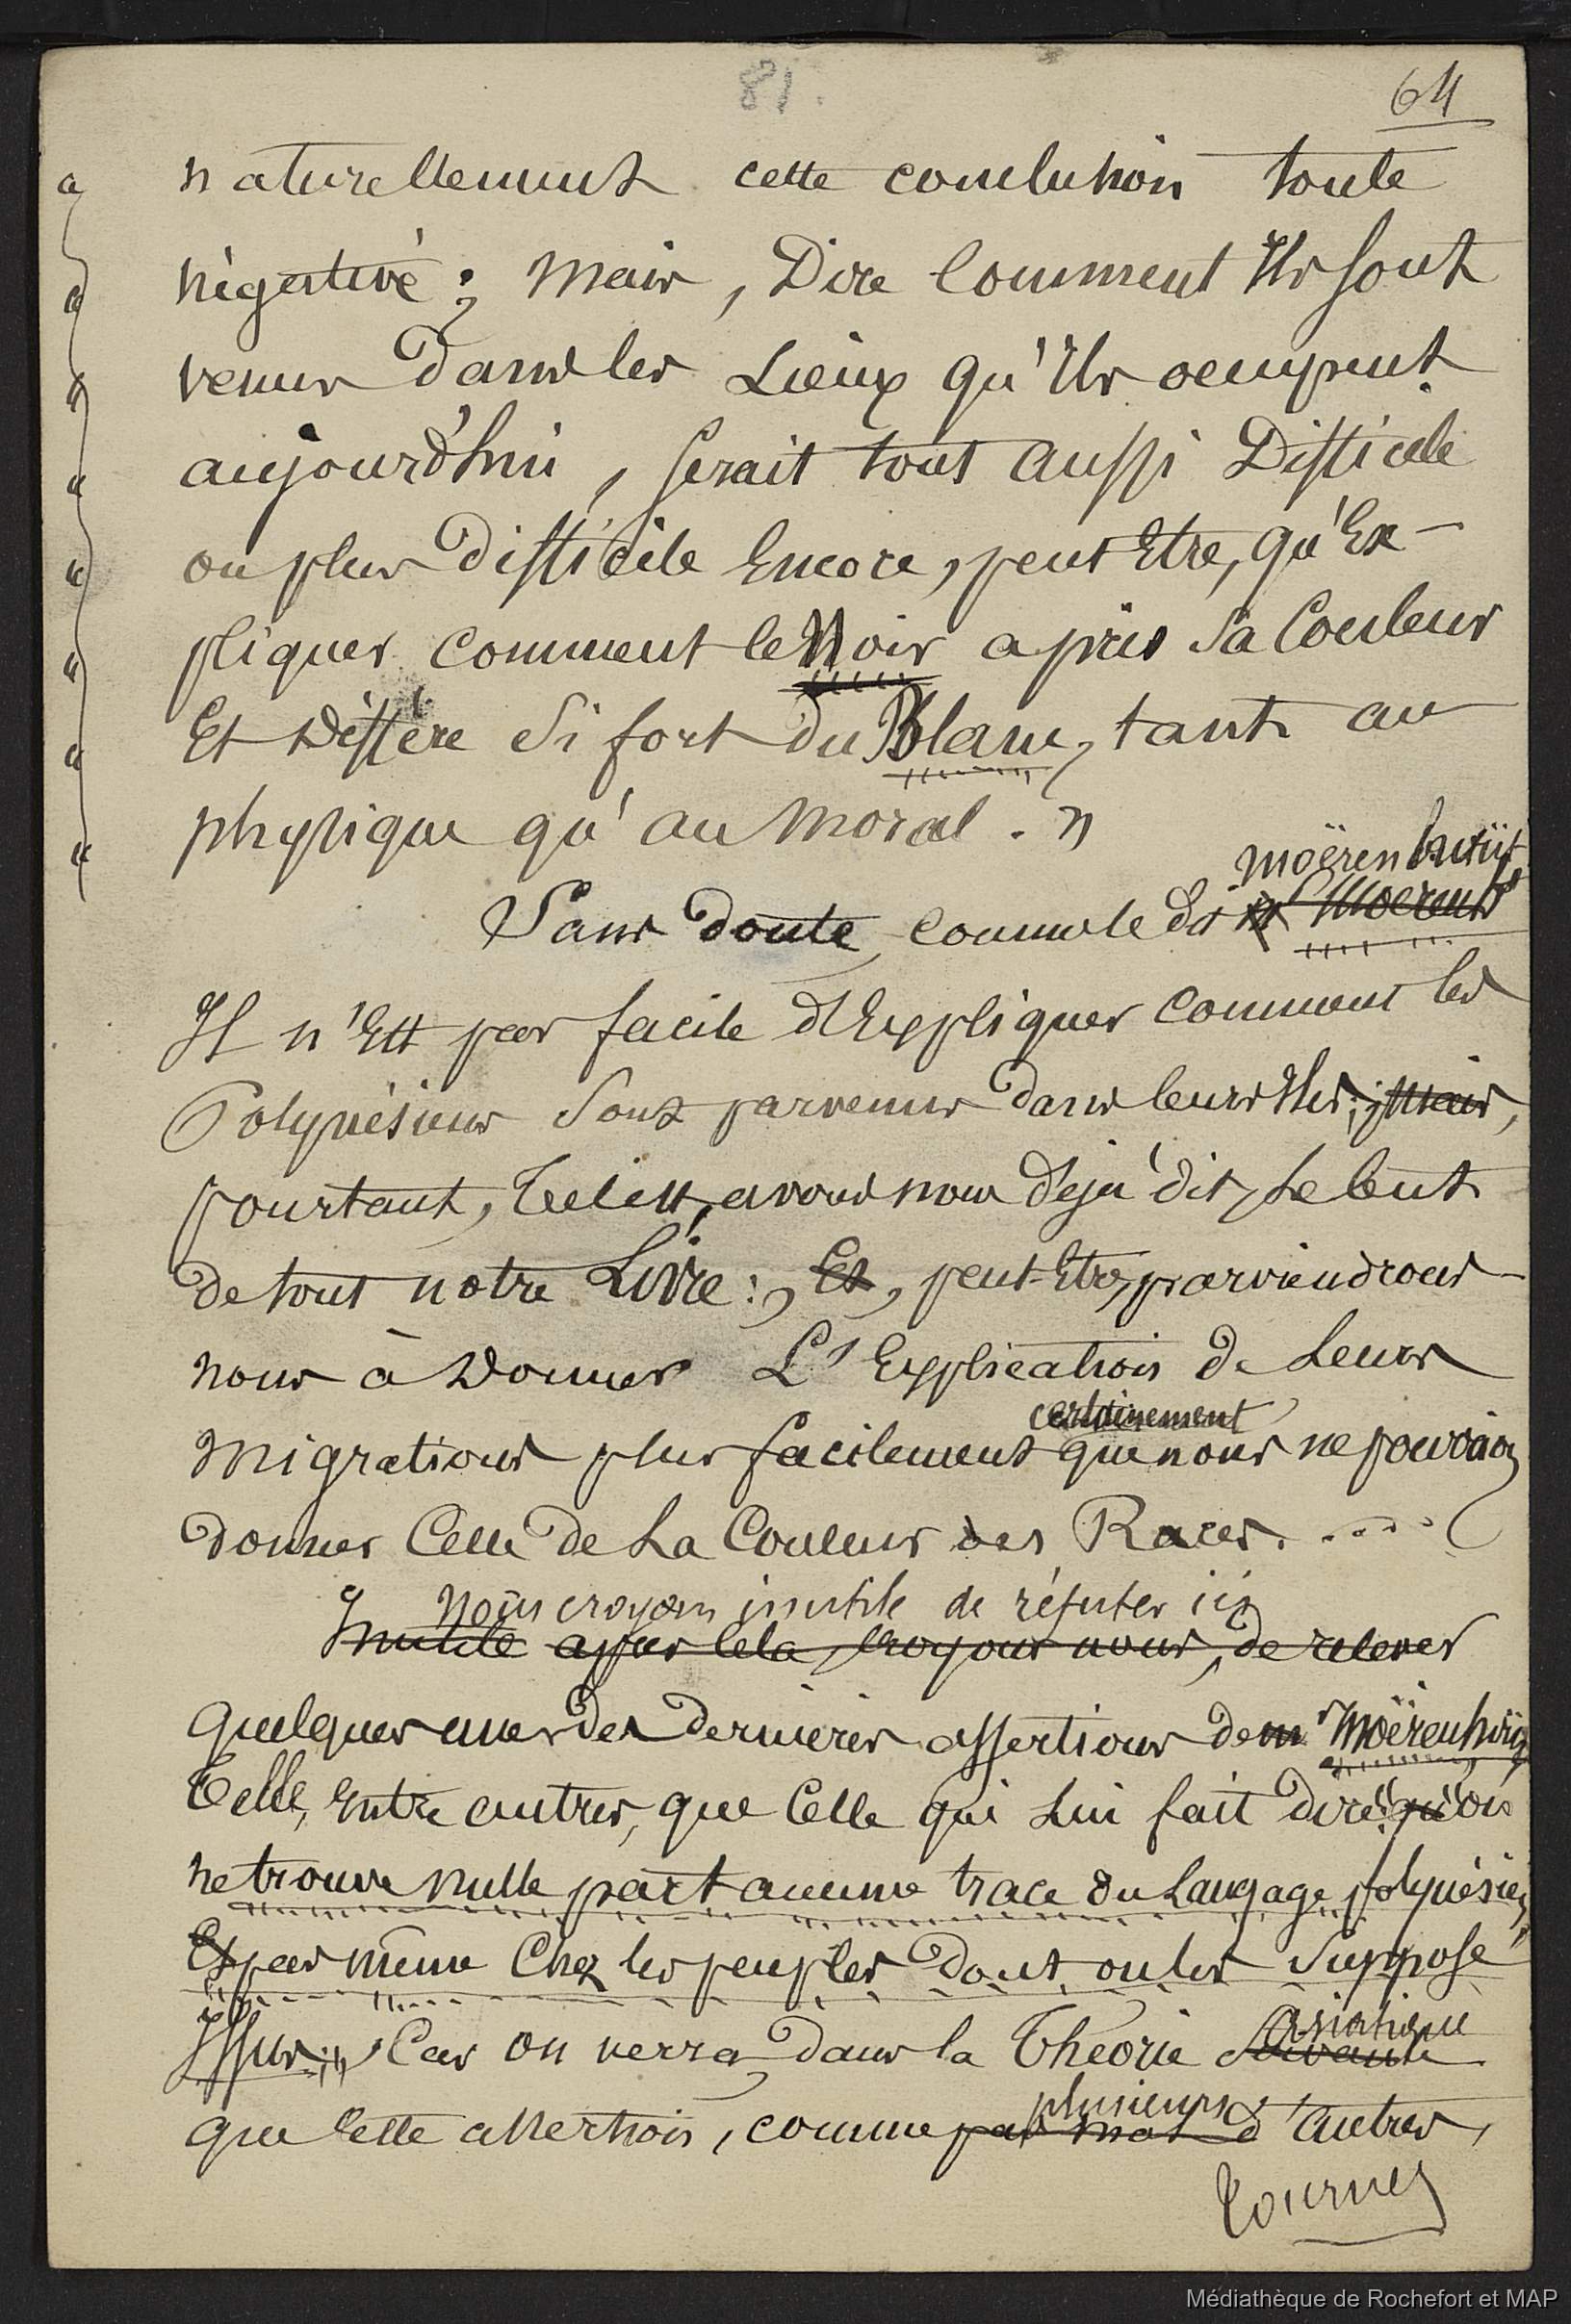 81.
64
" naturellement cette conclusion toute
" négative ; Mais, Dire Comment Ils sont
" venus dans les Lieux qu'Ils occupent
" aujourd'hui, serait tout aussi Difficile
" ou plus difficile Encore, peut Etre, qu'Ex-
" pliquer comment le Noir a pris sa Couleur
" Et Diffère si fort du Blanc, tant au
" physique qu'au Moral. »
Moërenhoüt
Sans doute comme le dit Mr Moerenh
Il n'Est pas facile d'Expliquer Comment les
Polynésiens sont parvenus dans leurs Iles; Mais,
pourtant, Tel est, avons nous déjà dit, Le but
de tout notre Livre : Et, peut-Etre, parviendrons
nous à Donner L'Explication de Leurs
certainement
Migrations plus facilement que nous ne pouvions
donner Celle de La Couleur des Races.....
Nous croyons inutile de réfuter ici
Inutile après Cela, croyons nous, de relever
quelques unes des dernières assertions de mr Moërenhoüt
Telle, Entre autres, que Celle qui Lui fait dire "qu'on
ne trouve nulle part aucune trace du Langage polynésien,
Et pas même Chez les peuples dont on les suppose
Issus", Car on verra, dans la Théorie
asiatique
suivante
que Cette assertion, comme
plusieurs
pas mal d'autres,
Tournez
Médiathèque de Rochefort et MAP